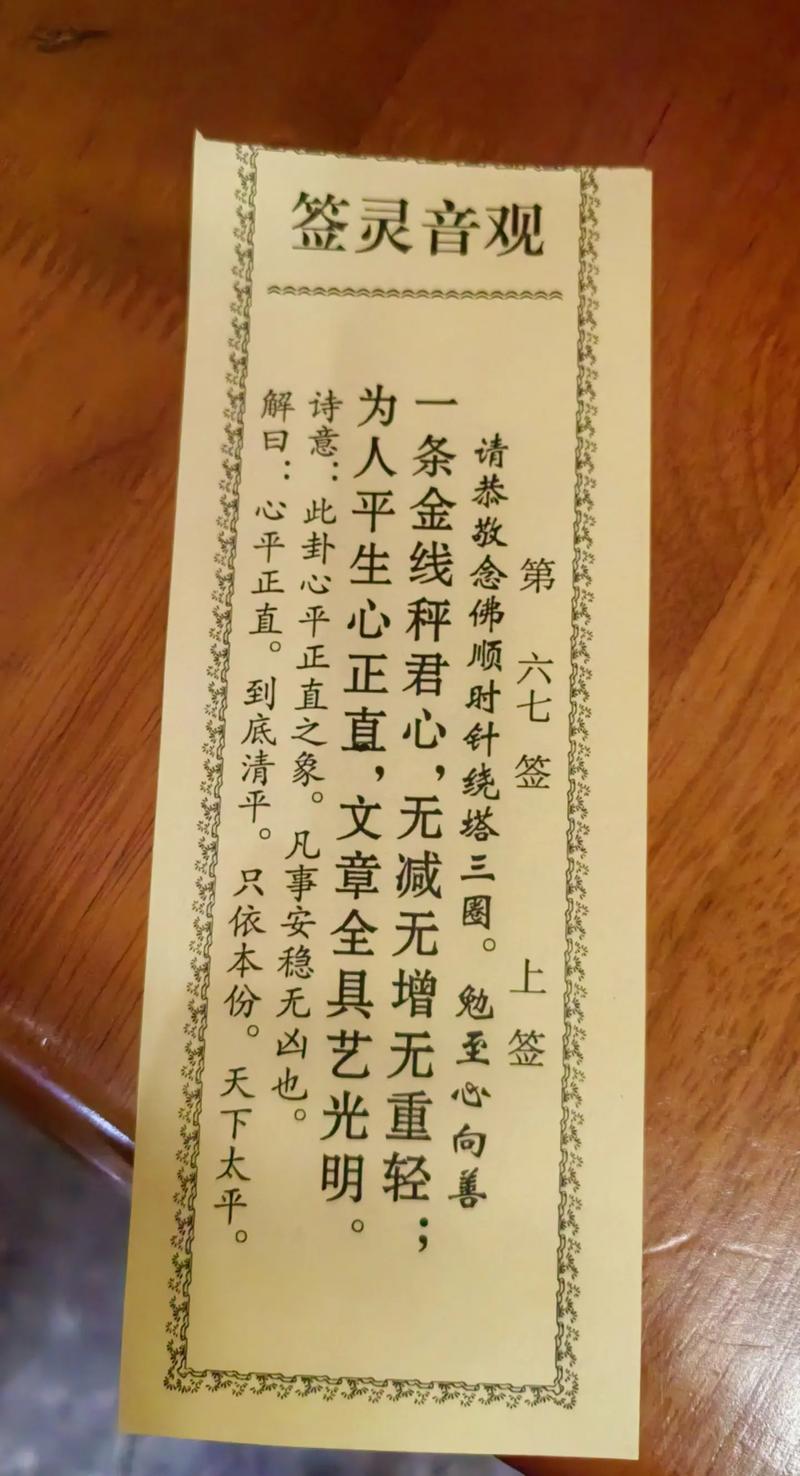 观音灵签
第 六七 签 上签
请恭敬念佛顺时针绕塔三圈。勉至心向善
一条金线秤君心，无减无增无重轻；
为人平生心正直，文章全具艺光明。
诗意：此卦心平正直之象。凡事安稳无凶也。
解曰：心平正直。到底清平。只依本份。天下太平。